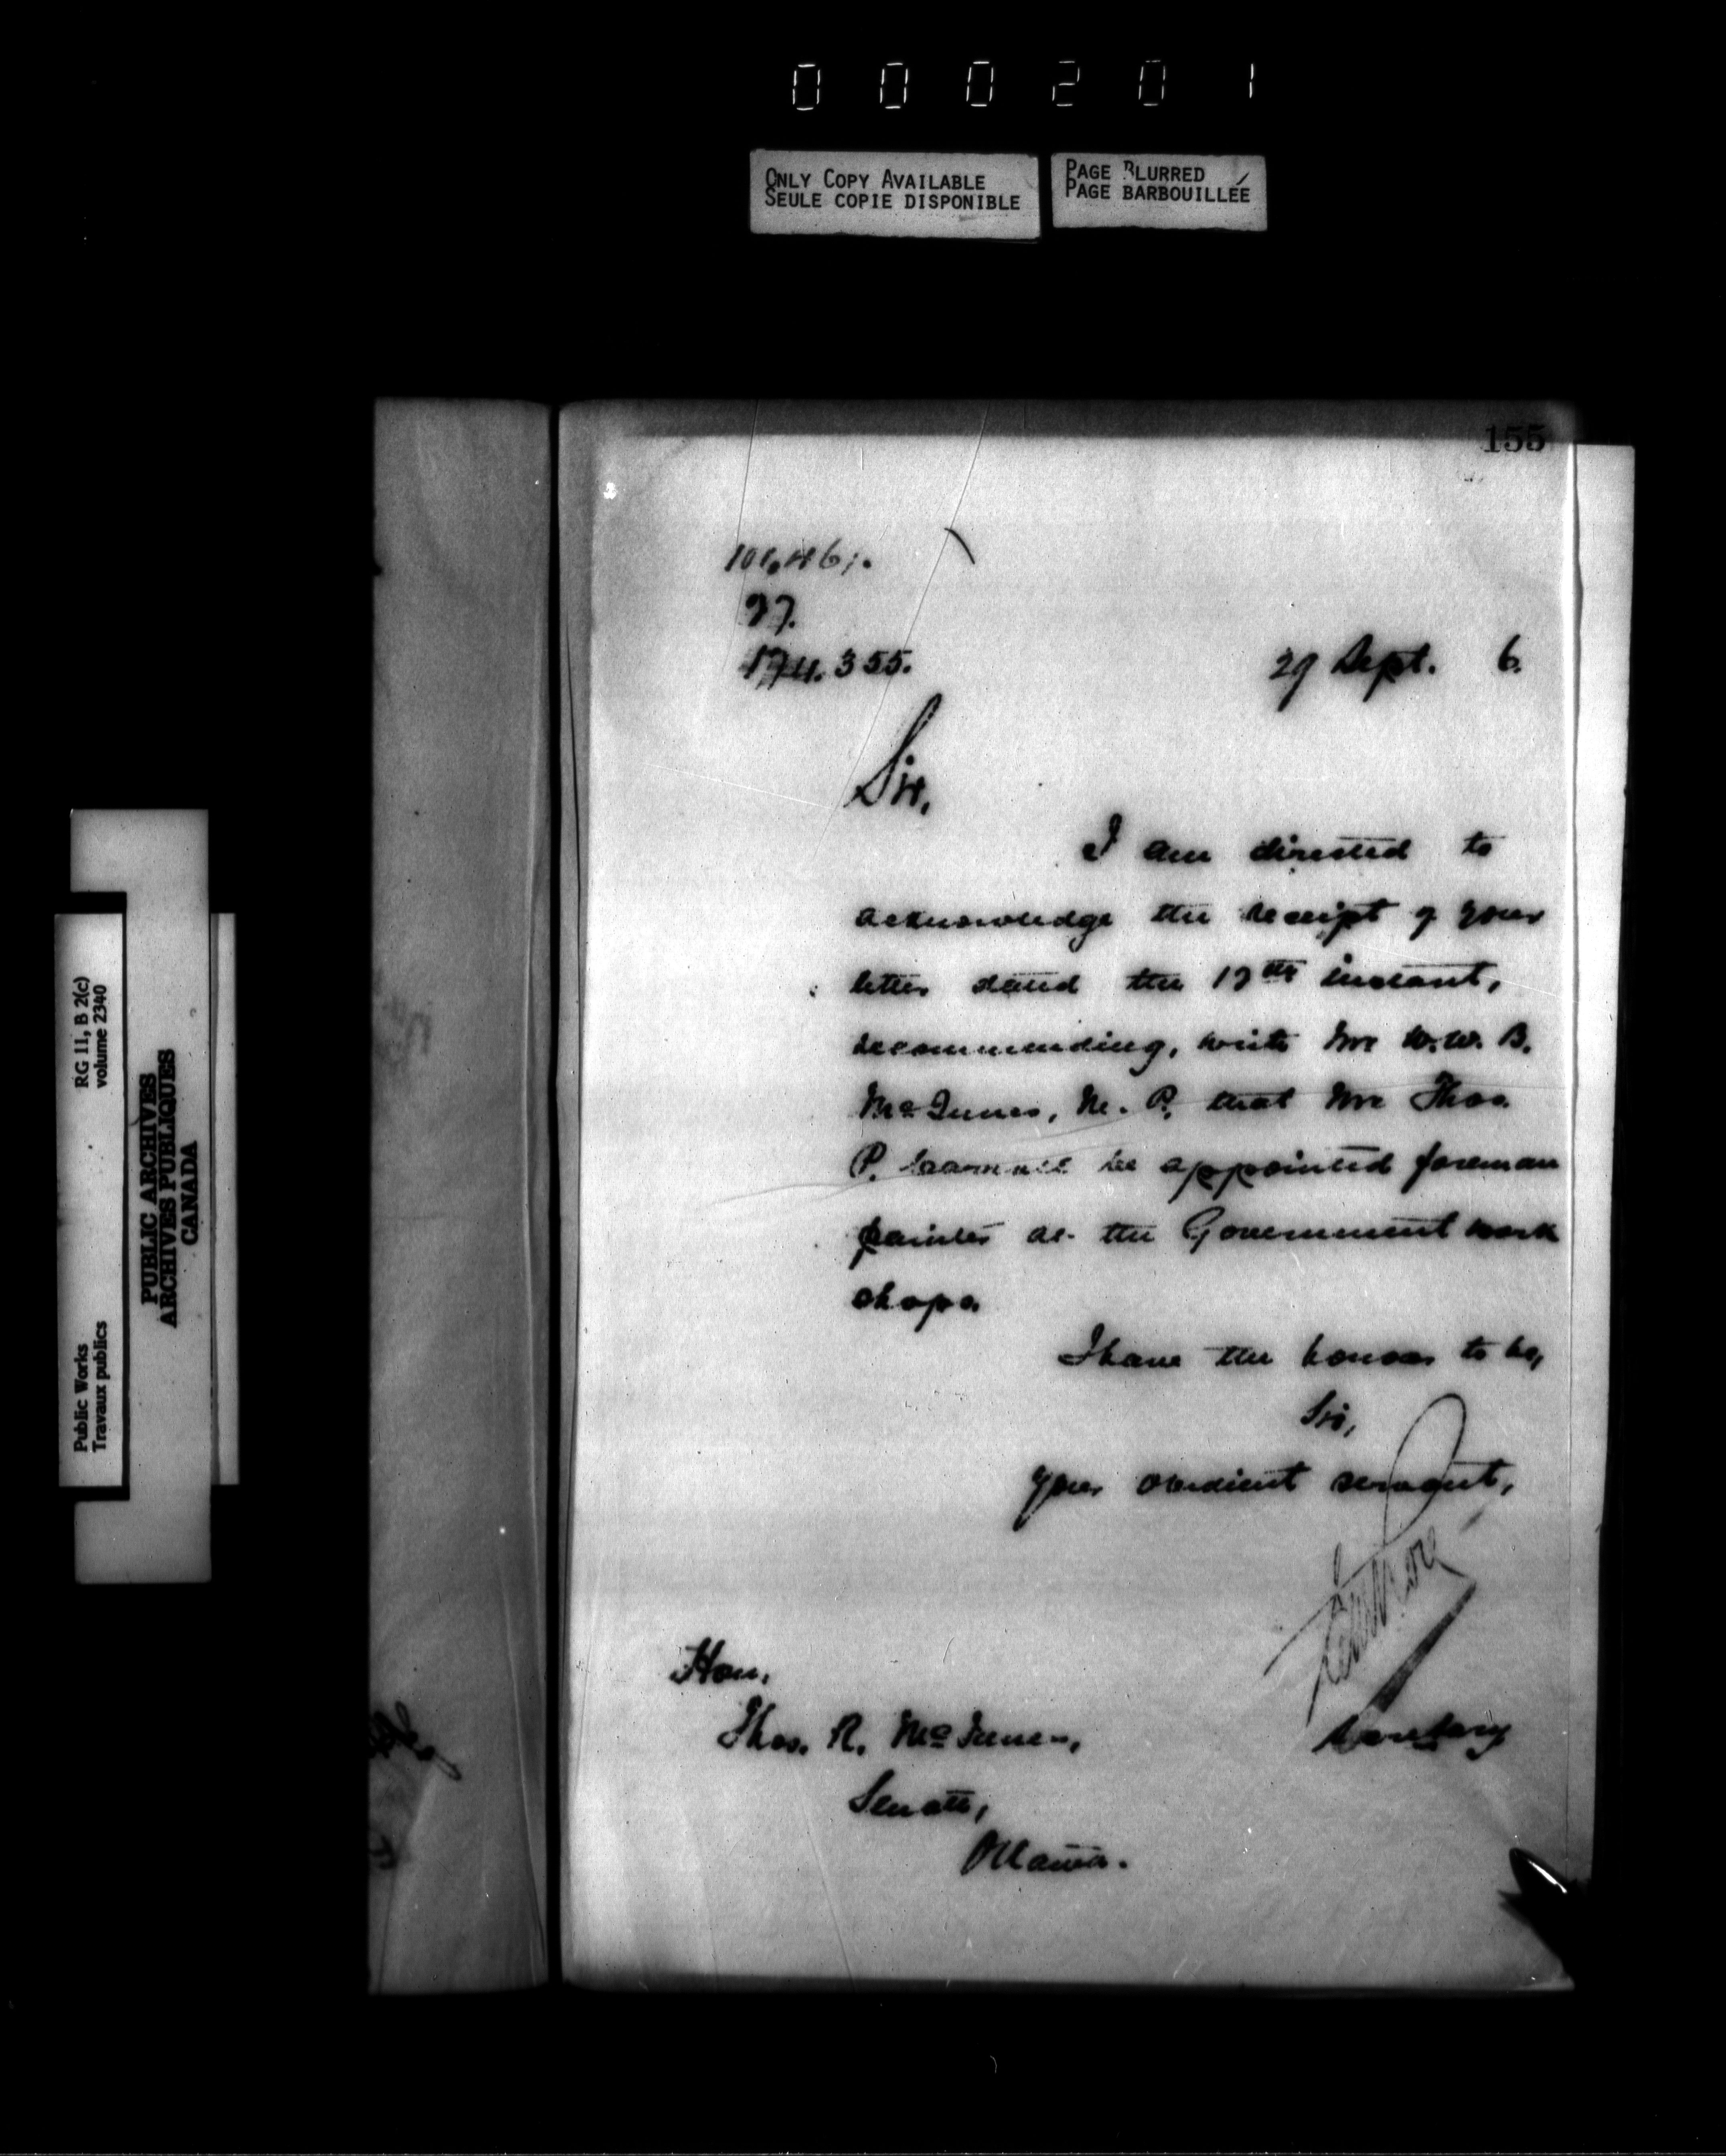 000201
ONLY COPY AVAILABLE
SEULE COPIE DISPONIBLE
PAGE BLURRED
PAGE BARBOUILLÉE
RG 11, B 2(c)
volume 2340
Public Works
Travaux publics
PUBLIC ARCHIVES
ARCHIVES PUBLIQUES
CANADA
155
27.
174.355.
29 Sept. 6.
Sir,
I am directed to
acknowledge the receipt of your
letter dated the 17th instant,
recommending, with Mr W. W. B.
McInnes, M. P. that Mr Thos.
P. be appointed foreman
painter at the Government work
shops.
I have the honour to be,
Sir,
Your obedient servant,
Secretary
Hon,
Thos. R. McInnes,
Senate,
Ottawa.